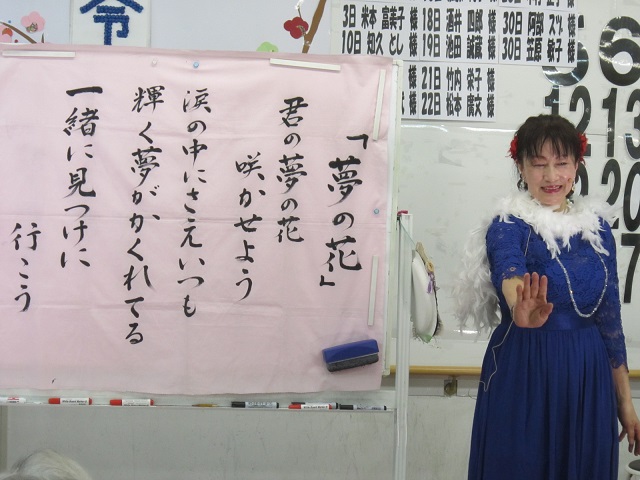 令
3日 米本 富美子 様 18日 酒井 四郎 様 30日 阿部 スツ 様
10日 知久 とし 様 19日 池田 誠蔵 様 30日 笠原 敏子 様
21日 竹内 栄子 様
22日 松本 廣文 様
6
12 13
20
7
「夢の花」
君の夢の花
咲かせよう
涙の中にさえいつも
輝く夢がかくれてる
一緒に見つけに
行こう